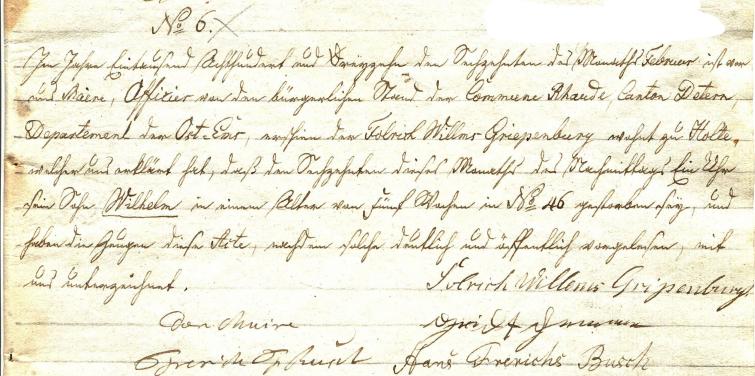 No 6.
Im Jahre Eintausend Achthundert und Dreyzehn den Sechzehnten des Monaths Februar ist vor
uns Maire, Officier von den bürgerlichen Stand der Commune Rhaude, Canton Detern,
Departement der Ost-Ems, erschien der Folrich Willms Griepenburg wohnt zu Holte,
welcher uns erklärt hat, daß den Sechzehnten dieses Monaths des Nachmittags Ein Uhr
sein Sohn Wilhelm in einem Alter von fünf Wochen in No 46 gestorben sey, und
haben die Zeugen diese Acte, nachdem solche deutlich und öffentlich vorgelesen, mit
uns unterzeichnet.
Folrich Willems Gripenburg
Der Maire
Hans Frerichs Busch